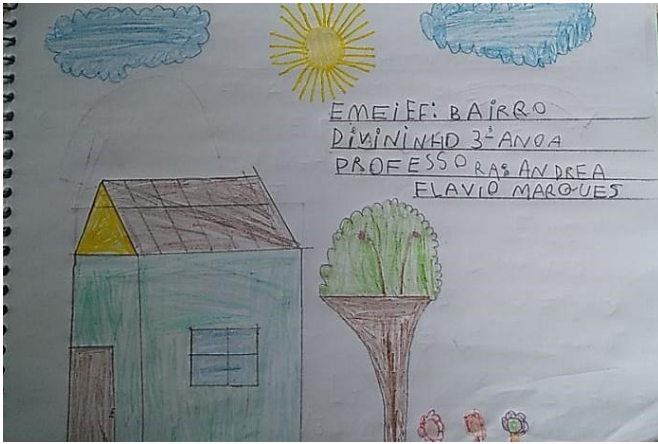 EMEIEF: BAIRRO
DIVININHO 3º ANO A
PROFESSORA: ANDREA
FLAVIO MARQUES